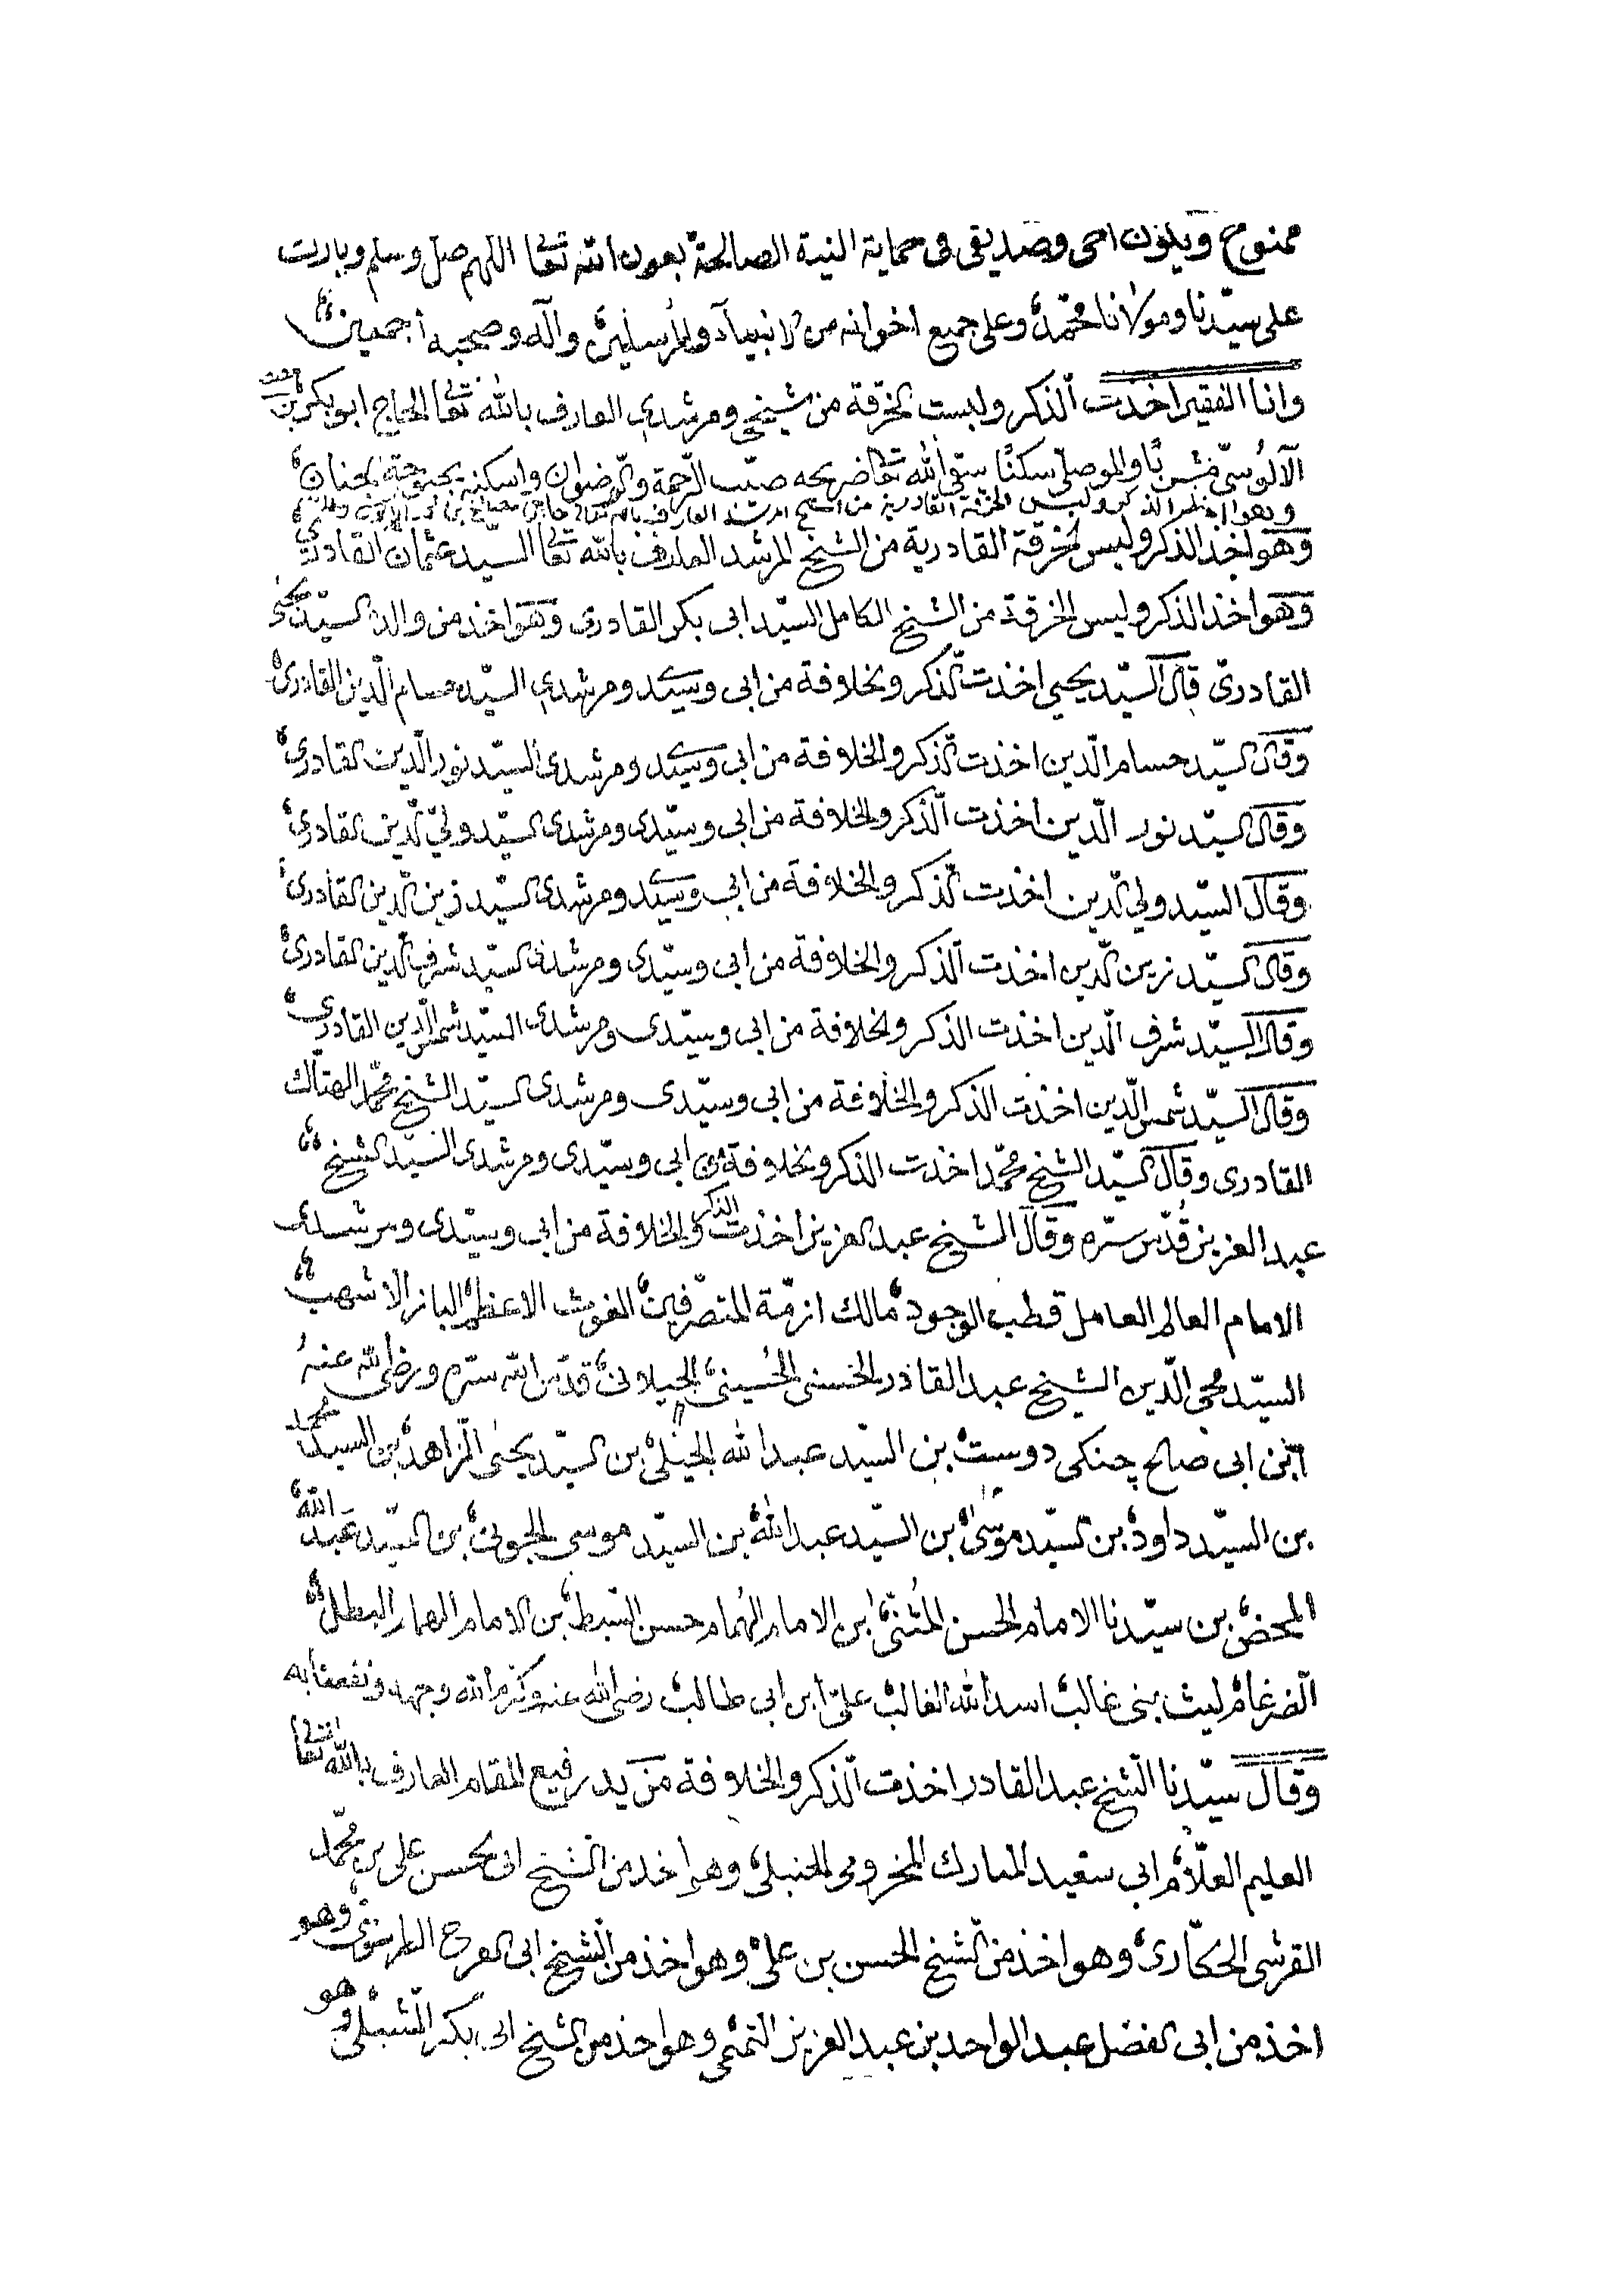 ممنوح ويكون اخى وصديقى فى حماية النية الصالحة بعون الله تعالى اللهم صل وسلم وبارك
على سيّدنا ومولانا محمّد وعلى جميع اخوانه من الانبيآء والمرسلين وآله وصحبه اجمعين
وانا الفقير اخذت الذكر ولبست الخرقة من شيخى ومرشدى العارف بالله تعالى الحاج ابو بكر بن
الآلوسىّ مشربًا والموصلى سكنًا سقى الله تعالى ضريحه صيّب الرّحمة والرّضوان واسكنه بحبوحة الجنان
وهو اخذ الذكر ولبس الخرقة القادرية من الشيخ المرشد العارف بالله تعالى
وهو اخذ الذكر ولبس الخرقة القادرية من الشيخ المرشد العارف بالله تعالى السيّد عثمان القادرى
وهو اخذ الذكر ولبس الخرقة من الشيخ الكامل السيّد ابى بكر القادرى وهو اخذ من والده السيّد يحيى
القادرىّ قال السيّد يحيى اخذت الذكر والخلافة من ابى وسيّدى ومرشدى السيّد حسام الدّين القادرى
وقال السيّد حسام الدّين اخذت الذكر والخلافة من ابى وسيّدى ومرشدى السيّد نور الدّين القادرى
وقال السيّد نور الدّين اخذت الذكر والخلافة من ابى وسيّدى ومرشدى السيّد ولىّ الدّين القادرى
وقال السيّد ولى الدّين اخذت الذكر والخلافة من ابى وسيّدى ومرشدى السيّد زين الدّين القادرى
وقال السيّد زين الدّين اخذت الذكر والخلافة من ابى وسيّدى ومرشدى السيّد شرف الدّين القادرى
وقال السيّد شرف الدّين اخذت الذكر والخلافة من ابى وسيّدى ومرشدى السيّد شمس الدّين القادرى
وقال السيّد شمس الدّين اخذت الذكر والخلافة من ابى وسيّدى ومرشدى السيّد الشيخ محمّد الهتّاك
القادرى وقال السيّد الشيخ محمّد اخذت الذكر والخلافة من ابى وسيّدى ومرشدى السيّد الشيخ
عبد العزيز قُدّس سرّه وقال الشيخ عبد العزيز اخذت الذكر والخلافة من ابى وسيّدى ومرشدى
الامام العالم العامل قطب الوجود مالك ازمّة المتصرّفين الغوث الاعظم الباز الاشهب
السيّد محى الدّين الشيخ عبد القادر الحسنى الحُسينى الجيلانى قدّس الله سرّه ورضى الله عنهُ
ابن ابى صالح جنكى دوست بن السيّد عبد الله الجيلى بن السيّد يحيى الزاهد بن السيد محمد
بن السيّد داود بن السيّد موسٰى بن السيّد عبد الله بن السيّد موسى الجون بن السيّد عبد الله
المحض بن سيّدنا الامام الحسن المُثنّى ابن الامام الهُمام حسن السّبط بن الامام الهمام البطل
الضرغام ليث بنى غالب اسد الله الغالب علىّ ابن ابى طالب رضى الله عنه وكرّم الله وجهه ونفعنا به
وقال سيّدنا الشيخ عبد القادر اخذت الذكر والخلافة من يد رفيع المقام العارف بالله تعالى
العليم العلّام ابى سعيد المبارك المخزومى الحنبلى وهو اخذ من الشيخ ابى الحسن على بن محمّد
القرشى الحكّارى وهو اخذ من الشيخ الحسن بن على وهو اخذ من الشيخ ابى الفرج الطرسوسى وهو
اخذ من ابى الفضل عبد الواحد بن عبد العزيز التميمى وهو اخذ من الشيخ ابى بكر الشبلى وهو